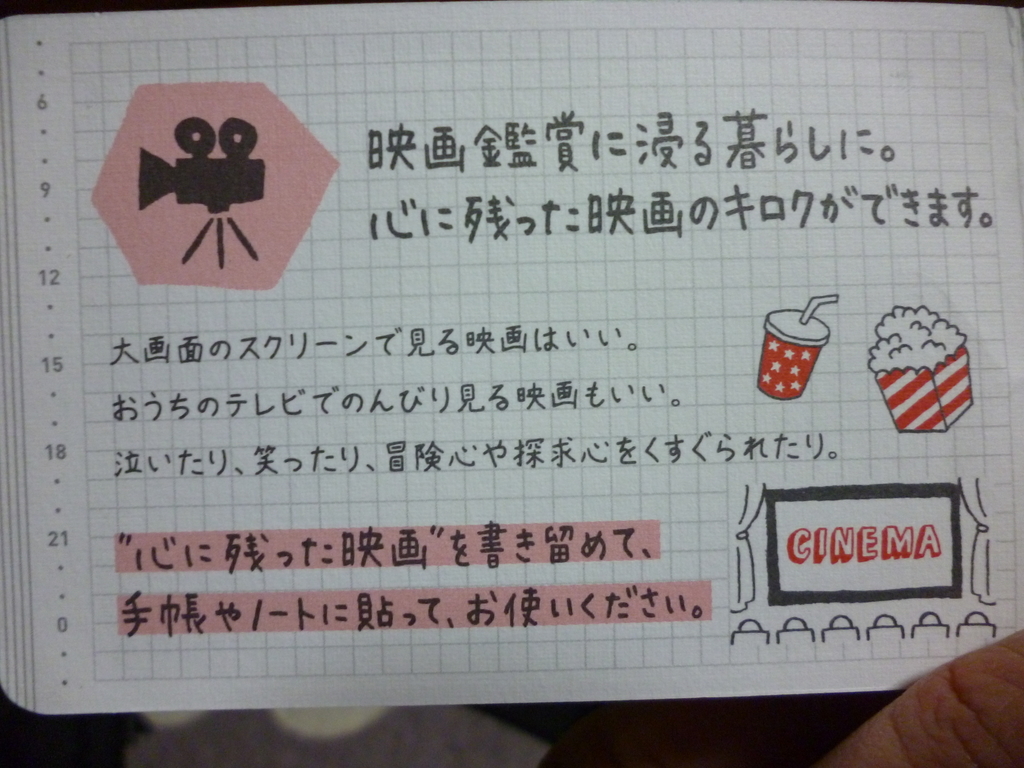 映画鑑賞に浸る暮らしに。
心に残った映画のキロクができます。
大画面のスクリーンで見る映画はいい。
おうちのテレビでのんびり見る映画もいい。
泣いたり、笑ったり、冒険心や探求心をくすぐられたり。
"心に残った映画"を書き留めて、
手帳やノートに貼って、お使いください。
CINEMA
6
9
12
15
18
21
0